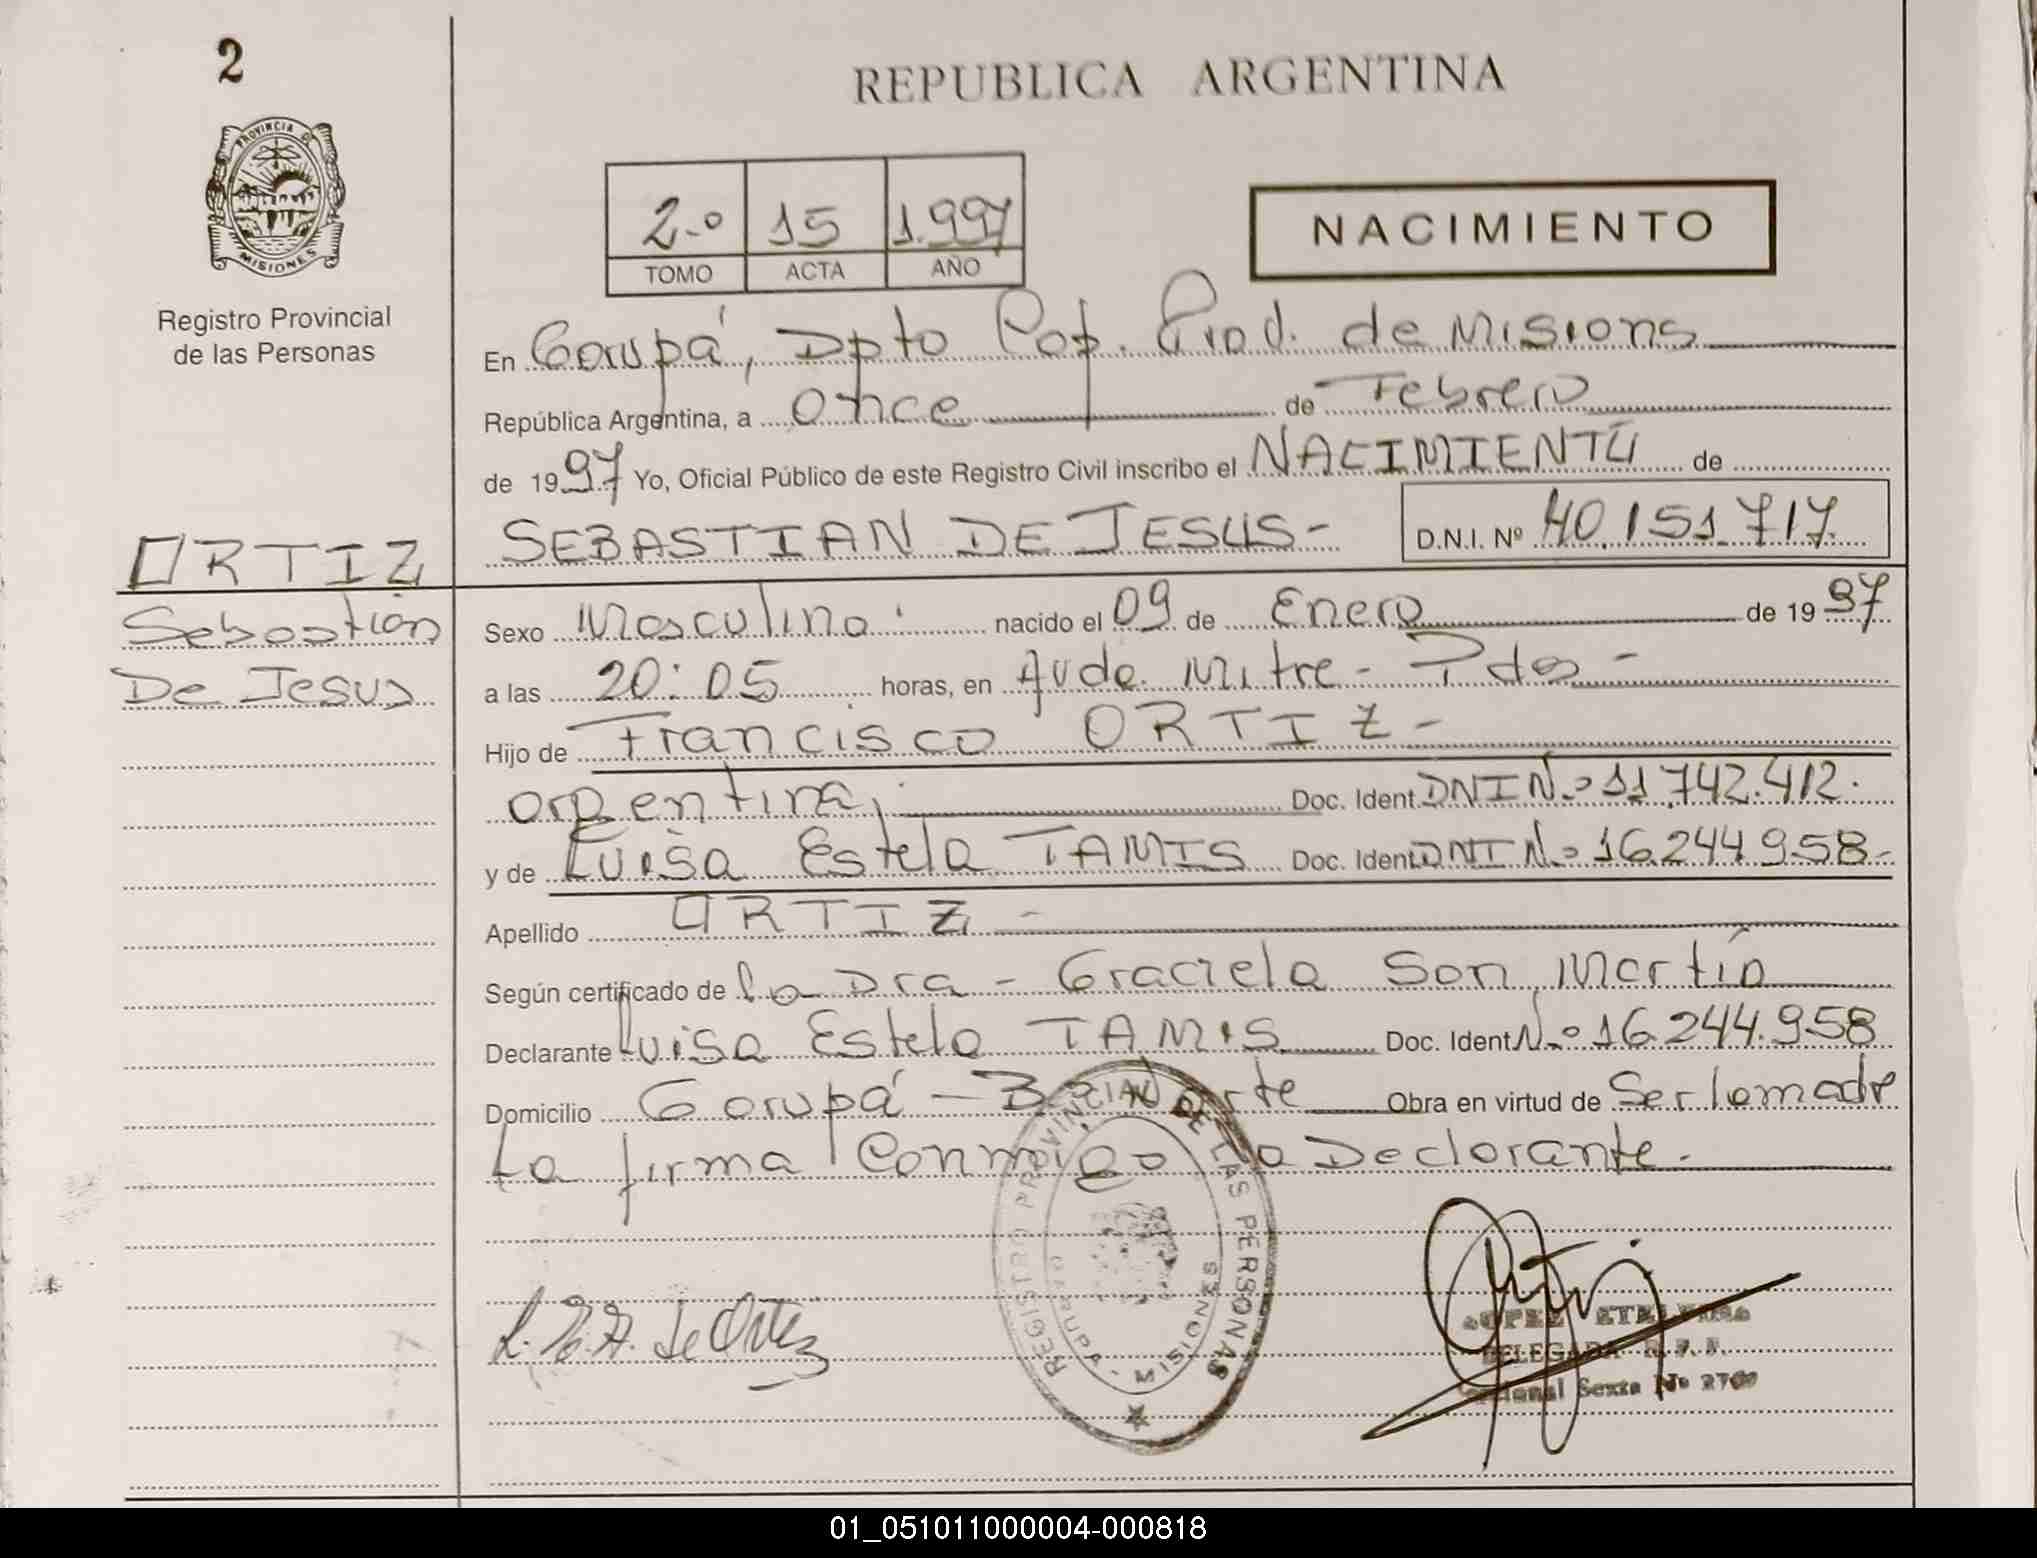 2
REPUBLICA ARGENTINA
PROVINCIA DE
MISIONES
Registro Provincial
de las Personas
2.º 15 1.997
TOMO ACTA AÑO
NACIMIENTO
En Garupá, Dpto Cap. Prov. de Misions
República Argentina, a Once de Febrero
de 1997 Yo, Oficial Público de este Registro Civil inscribo el NACIMIENTO de
SEBASTIAN DE JESUS- D.N.I. Nº 40.151.717.
ORTIZ
Sebastián
De Jesus
Sexo Masculino nacido el 09 de Enero de 1997
a las 20:05 horas, en Avda. Mitre - Pdas -
Hijo de Francisco ORTIZ -
argentina, Doc. Ident. DNI N.º 11.742.412.
y de Luisa Estela TAMIS Doc. Ident. DNI N.º 16.244.958-
Apellido ORTIZ -
Según certificado de la Dra - Graciela San Martín
Declarante Luisa Estela TAMIS Doc. Ident. N.º 16.244.958
Domicilio Garupá - Obra en virtud de Ser la madre
La firma Conmigo la Declarante.
REGISTRO PROVINCIAL DE LAS PERSONAS
GARUPA - MISIONES
L. E. T. de Ortiz
LOPEZ
DELEGADA R.P.P.
Sexta Nº
01_051011000004-000818